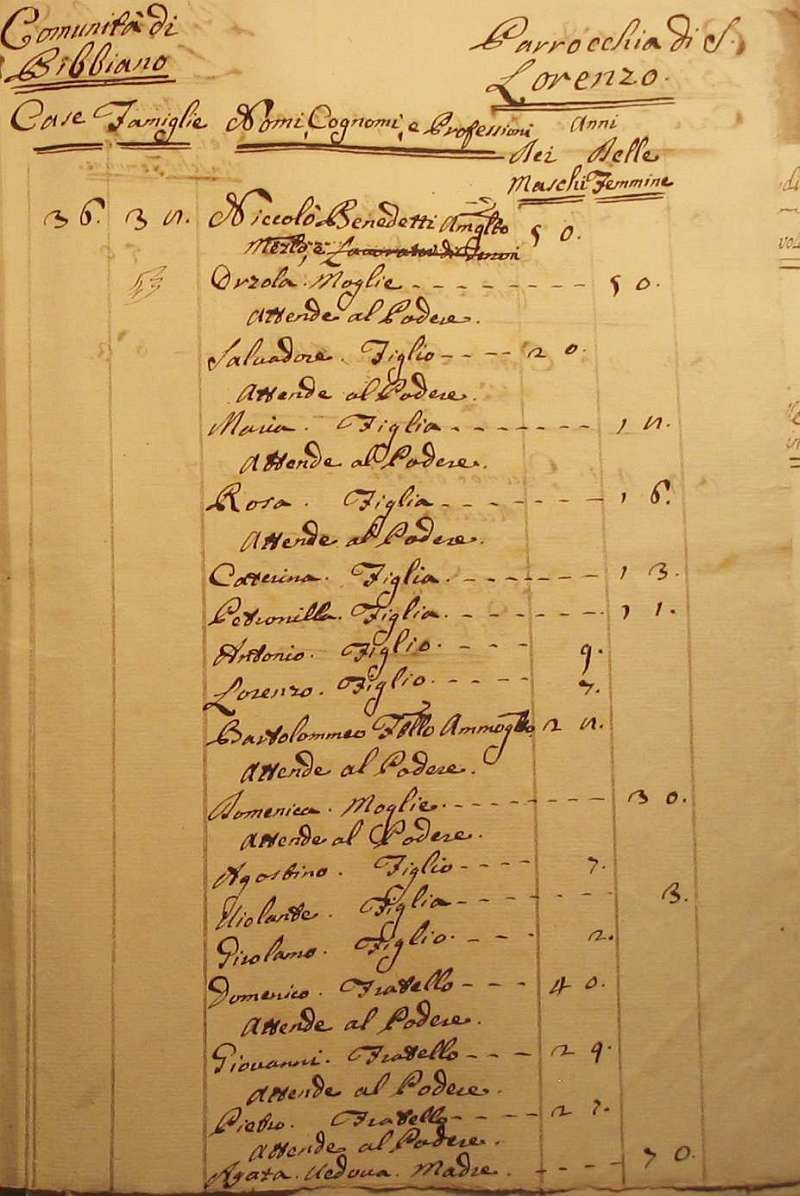 Comunità di
Bibbiano
Parrocchia di S.
Lorenzo.
Case Famiglie Nomi, Cognomi, e Professioni Anni
Dei Delle
Maschi Femmine
36. 38. Niccolò Benedetti Amglto 50.
Mezlo, e Lavorator di Terreni
Orzola. Moglie - - - - - - - - - 50.
Attende al Podere.
Salvadore. Figlio - - - - 20.
Attende al Podere.
Maria. Figlia - - - - - - - 18.
Attende al Podere.
Rosa. Figlia - - - - - - - - 16.
Attende al Podere.
Caterina. Figlia. - - - - - - - 13.
Petronilla. Figlia. - - - - - - - 11.
Antonio. Figlio. - - - - 9.
Lorenzo. Figlio. - - - - - 7.
Bartolommeo Fllo Ammoglto 28.
Attende al Podere.
Domenica. Moglie. - - - - - - - - - 30.
Attende al Podere.
Agostino. Figlio - - - - 7.
Uiolante. Figlia - - - - - - - 3.
Girolamo. Figlio. - - - - 2.
Domenico. Fratello - - - 40.
Attende al Podere.
Giovanni. Fratello - - - 29.
Attende al Podere.
Pietro. Fratello - - - - - 27.
Attende al Podere.
Agata. Uedova. Madre. - - - - 70.